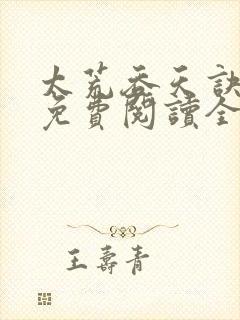 大荒吞天訣
免費閱讀全
王壽青